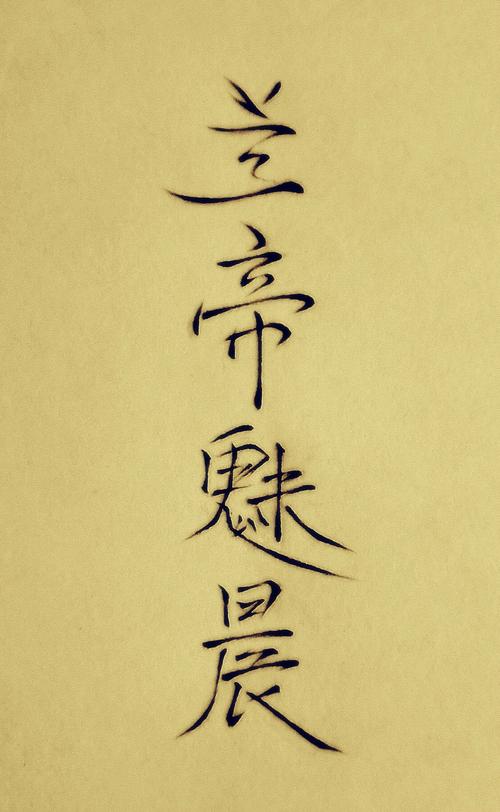 兰帝魅晨